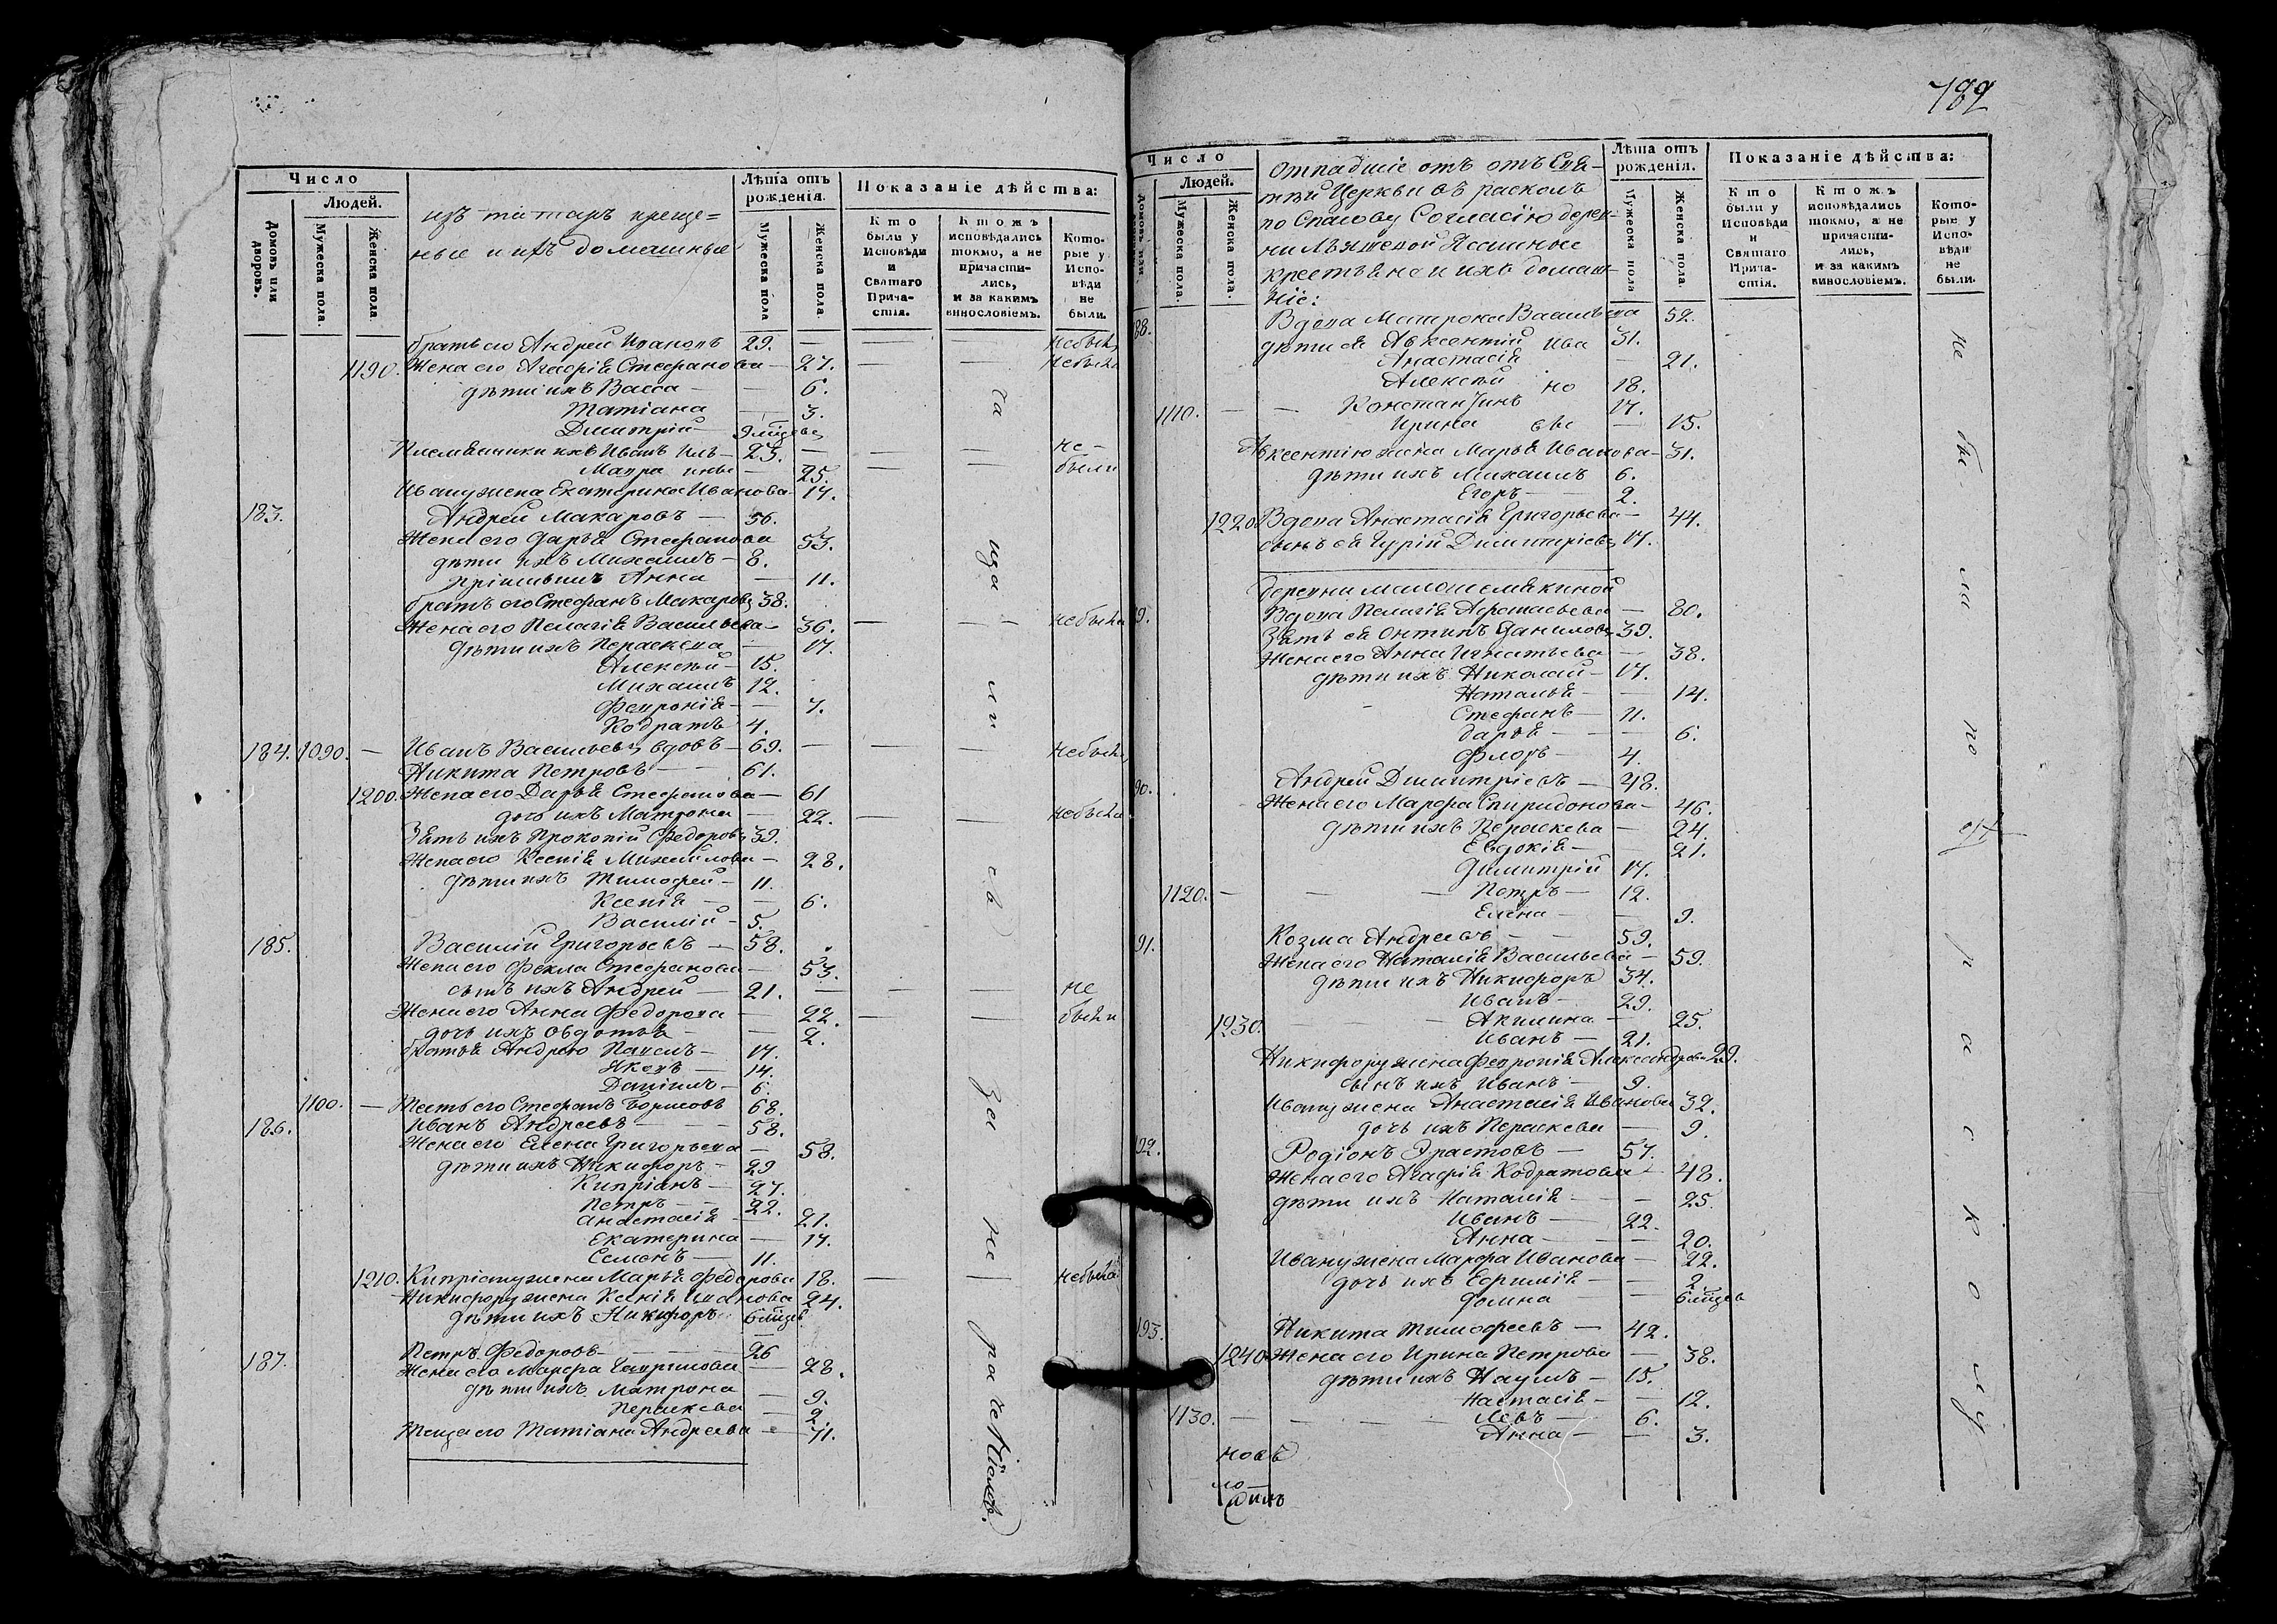 Число
Людей.
Домовъ или дворовъ.
Мужеска пола.
Женска пола
изъ татаръ креще=
ные и ихъ домашные
Лѣта отъ рожденія.
Мужеска пола
Женска пола.
Показаніе дѣйства:
Кто были у Исповѣди и Святаго Прича- стія.
Ктожъ исповѣдались токмо, а не причасти- лись, и за какимъ винословіемъ.
Кото- рые у Испо- вѣди не были.
братъ его Андрей Ивановъ 29. — — — небылъ
1190. Жена его Агафія Стефанова — 27. — — небыла
дѣти ихъ Васса — — 6.
Татіана — 3.
Димитрій — 9 мцовъ
Племянники ихъ Иванъ Иль- 23. — — — не-
Мавра ины — 25. — — были
Ивану жена Екатерина Иванова 17.
183. Андрей Макаровъ — 56.
Жена его Дарья Стефанова 53.
дѣти ихъ Михаилъ — 8.
Анна — 11.
братъ его Стефанъ Макаровъ 38.
Жена его Пелагія Васильева — 36. — — — небыла
дѣти ихъ Параскева — 17.
Алексѣй — 15.
Михаилъ 12.
Февронія — — 7.
Кодратъ 4.
184. 1090. — Иванъ Васильевъ вдовъ — 69. — — — небылъ
Никита Петровъ — — 61.
1200. Жена его Дарья Стефанова — 61
дочь ихъ Матрона — 22. — — небыла
Зять ихъ Прокопій Федоровъ 39.
Жена его Ксенія Михайлова — 28.
дѣти ихъ Тимофей — 11.
Ксенія — — 6.
Василій — 5.
185. Василій Григорьевъ — 58.
Жена его Фекла Стефанова — 53.
сынъ ихъ Андрей — 21. — — — не
Жена его Анна Федорова — 22. — — были
дочь ихъ Овдотья — — 2.
братья Андрею Павелъ — 17.
Яковъ — 14.
Даніилъ — 6.
1100. — Тесть его Стефанъ Борисовъ 68.
186. Иванъ Андреевъ — — 58.
Жена его Елена Григорьева — 58.
дѣти ихъ Никифоръ — 29
Кипріанъ — 27.
Петръ — — 22.
Анастасія — 21.
Екатерина — 17.
Семенъ — 11.
1210. Кипріану жена Марья Федорова 18. — — небыла
Никифору жена Ксенія Иванова 24.
дѣти ихъ Никифоръ 6 мцовъ
187. Петръ Федоровъ — — — 26
Жена его Марфа Гаврилова — 28.
дѣти ихъ Матрона — 9.
Параскева — 2.
Теща его Татіана Андреева — 71.
182
Число
Людей.
Домовъ или
Мужеска пола.
Женска пола.
Отпадшіе отъ отъ Свя-
тѣй Церкьви въ расколъ
по Спасову Согласію дерев-
ни
крестьяне и ихъ домаш-
ніе:
Лѣта отъ рожденія.
Мужеска пола
Женска пола.
Показаніе дѣйства:
Кто были у Исповѣди и Святаго Прича- стія.
Ктожъ исповѣдались токмо, а не причасти- лись, и за какимъ винословіемъ.
Кото- рые у Испо- вѣди не были.
88. Вдова Матрона Васильева 52.
дѣти ея Авксентій Ива 31.
Анастасія — 21.
Алексѣй но 18.
1110. — — Константинъ 17.
Ирина вы — 15.
Авксентію жена Марья Иванова — 31.
дѣти ихъ Михаилъ 6.
Егоръ — 2.
1220. Вдова Анастасія Григорьева — 44.
сынъ ея Гурій Димитріевъ 17.
деревни
9. Вдова Пелагія Афонасьева — 80.
Зять ея Онтипъ Даниловъ 39.
Жена его Анна Игнатьева — 38.
дѣти ихъ Николай — 17.
Наталья — — 14.
Стефанъ — 11.
Дарья — — 6.
Флоръ — 4.
90. Андрей Димитріевъ — 48.
Жена его Марфа Спиридонова — 46.
дѣти ихъ Параскева — 24.
Евдокія — 21.
Димитрій 17.
1120. — — — Петръ — 12.
Елена — — 9.
91. Козма Андреевъ — — 59.
Жена его Наталія Васильева — 59.
дѣти ихъ Никифоръ 34.
Иванъ — 29.
1230. — — Акилина — 25.
Иванъ — 21.
Никифору жена Февронія Александрова 29.
сынъ ихъ Иванъ — 9.
Ивану жена Анастасія Иванова 32.
дочь ихъ Параскева — 9.
192. Родіонъ Эрастовъ — 57.
Жена его Агафія Кодратова — 48.
дѣти ихъ Наталія — — 25.
Иванъ — 22.
Анна — — 20.
Ивану жена Марфа Иванова — 22.
дочь ихъ Ефимія — — 2.
Домна — — 6 мцовъ
193. Никита Тимофеевъ — 42.
1240. Жена его Ирина Петрова — 38.
дѣти ихъ Наумъ — 15.
Настасія — — 12.
1130. — — — Левъ — 6.
Анна — — 3.
не бы ли по
расколу